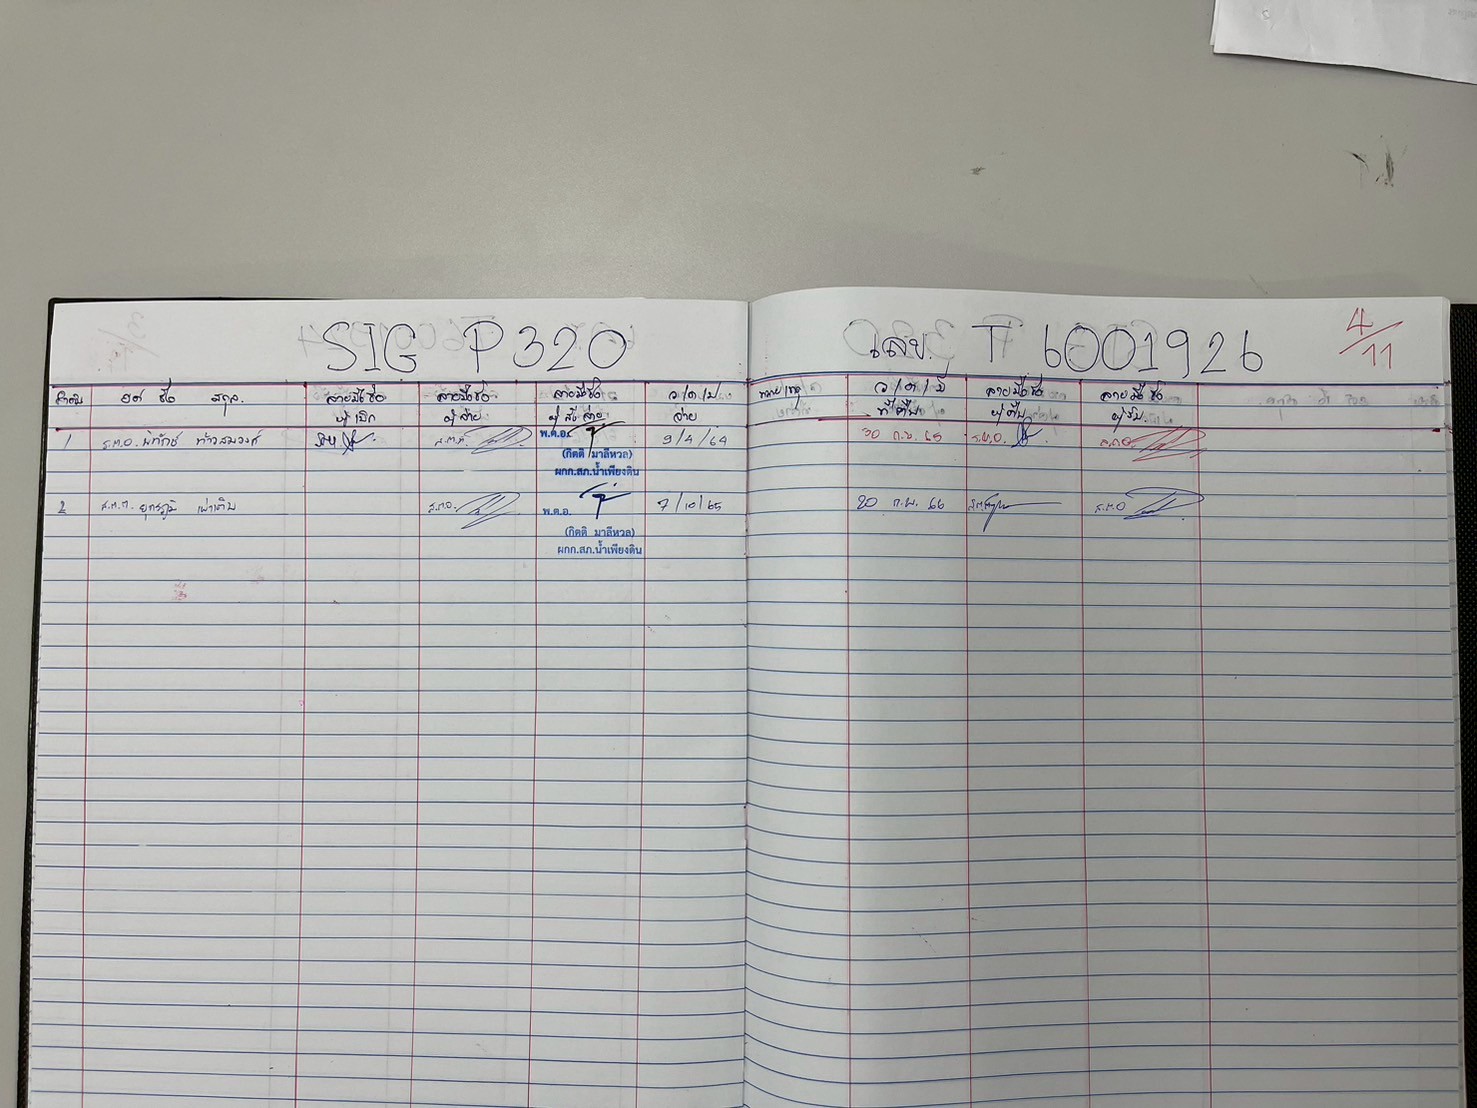 SIG P320
เลข. T 6001926
4/11
ลำดับ ยศ ชื่อ สกุล. ลายมือชื่อ ลายมือชื่อ ลายมือชื่อ ว/ด/ป หมายเหตุ ว/ด/ปี ลายมือชื่อ ลายมือชื่อ
ผู้เบิก ผู้จ่าย ผู้สั่งจ่าย จ่าย ที่คืน ผู้คืน ผู้รับ
1 ส.ต.อ. พิทักษ์ พ.ต.อ. 9/4/64 30 ก.ย. 65 ส.ต.อ. ส.ต.อ.
(กิตติ มาลีหวล)
ผกก.สภ.น้ำเพียงดิน
2 ส.ต.ต. ส.ต.อ. พ.ต.อ. 7/10/65 20 ก.พ. 66 ส.ต.อ
(กิตติ มาลีหวล)
ผกก.สภ.น้ำเพียงดิน